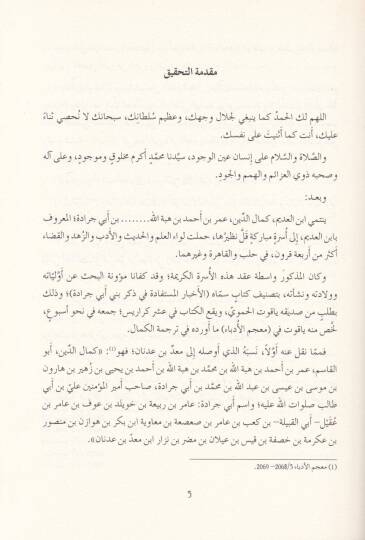 مقدمة التحقيق
اللهم لك الحمدُ كما ينبغي لجلال وجهك، وعظيم سُلطانِك، سبحانك لا نُحصي ثناءً
عليك، أنت كما أثنيتَ على نفسك.
والصَّلاة والسَّلام على إنسان عين الوجود، سيِّدنا محمَّدٍ أكرم مخلوقٍ وموجودٍ، وعلى آله
وصحبه ذوي العزائم والهمم والجُود.
وبعـد:
ينتمي ابن العديم، كمال الدِّين، عمر بن أحمد بن هبة الله........ بن أبي جرادة؛ المعروف
بابن العديم، إلى أُسرةٍ مباركةٍ قلَّ نظيرُها، حملت لواء العلم والحديث والأدب والزُّهد والقضاء
أكثر من أربعة قرون، في حلب والقاهرة وغيرهما.
وكان المذكورُ واسطة عقد هذه الأُسرة الكريمة؛ وقد كفانا مؤونة البحث عن أوَّليَّاته
وولادته ونشأته، بتصنيف كتابٍ سمّاه (الأخبار المستفادة في ذكر بني أبي جرادة)؛ وذلك
بطلبٍ من صديقه ياقوت الحمويِّ، ويقع الكتاب في عشر كراريس؛ جمعه في نحو أُسبوع،
لخّص منه ياقوت في (معجم الأدباء) ما أورده في ترجمة الكمال.
فممّا نقل عنه أوَّلاً، نَسَبَهُ الذي أوصله إلى معدِّ بن عدنان؛ فهو(1): «كمال الدِّين، أبو
القاسم، عمر بن أحمد بن هبة الله بن محمَّد بن هبة الله بن أحمد بن يحيى بن زُهير بن هارون
بن موسى بن عيسى بن عبد الله بن محمَّد بن أبي جرادة، صاحب أمير المؤمنين عليِّ بن أبي
طالب صلوات الله عليه؛ واسم أبي جرادة: عامر بن ربيعة بن خويلد بن عوف بن عامر بن
عُقَيْل– أبي القبيلة– بن كعب بن عامر بن صعصعة بن معاوية ابن بكر بن هوازن بن منصور
بن عكرمة بن خصفة بن قيس بن عيلان بن مضر بن نزار ابن معدّ بن عدنان».
(1) معجم الأدباء 2068/5– 2069.
5